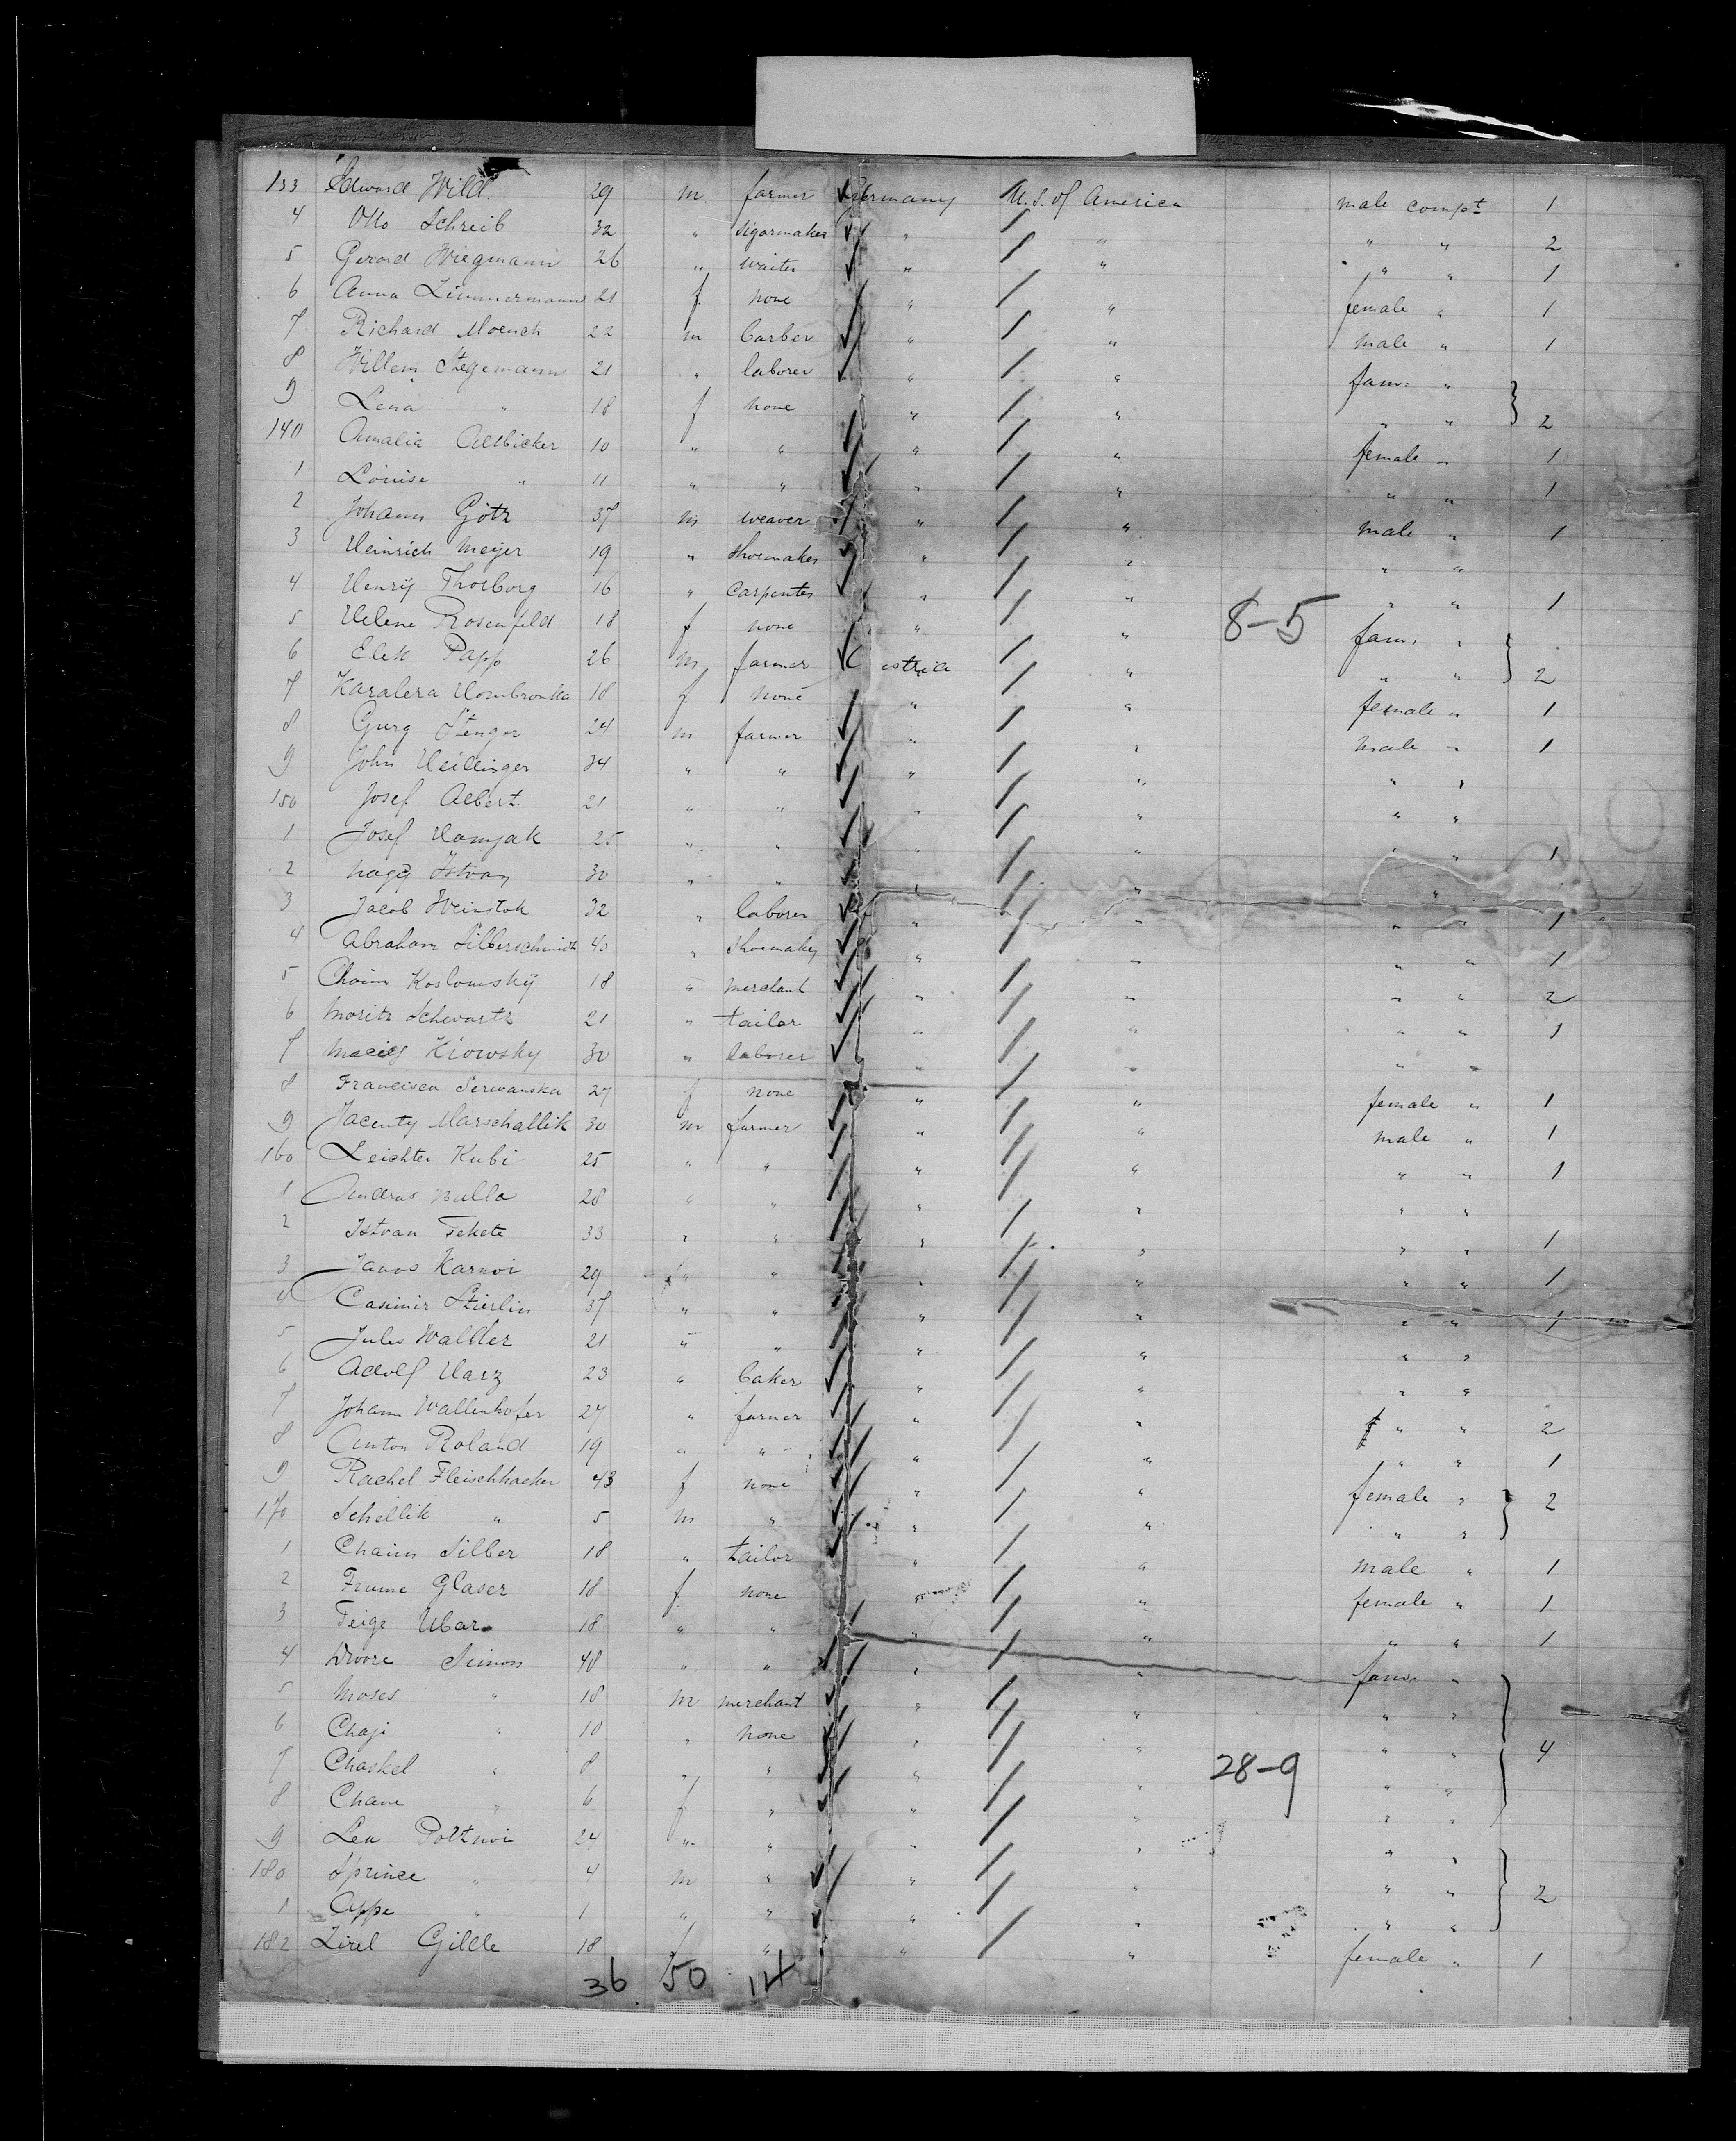 133 Edward Wild 29 m. farmer Germany U.S. of America male compt 1
4 Otto Schreib 32 " sigarmaker " " " " 2
5 Gerard Wiegmann 26 " waiter " " " " 1
6 Anna Zimmermann 21 f none " " female " 1
7 Richard Moench 22 m barber " " male " 1
8 Willem Stegemann 21 " laborer " " fam: "
9 Lena " 18 f none " " " " 2
140 Amalia Allbicker 10 " " " " female " 1
1 Louise " 11 " " " " " " 1
2 Johann Götz 37 m weaver " " male " 1
3 Heinrich Meijer 19 " shoemaker " " " "
4 Henrij Thorborg 16 " carpenter " " " " 1
5 Helene Rosenfeld 18 f none " " 8-5 fam: "
6 Elek Papp 26 m farmer " " " 2
7 Karalera Hombronka 18 f none " " female " 1
8 Gurg Stenger 24 m farmer " " male " 1
9 John Heillinger 34 " " " " " "
150 Josef Albert 21 " " " " " "
1 Josef Hamjak 25 " " " " " " 1
2 Nagy Istvan 30 " " " " "
3 Jacob Weinstok 32 " laborer " " " " 1
4 Abraham Silberschmidt 40 " shoemaker " " " " 1
5 Chaim Koslowskij 18 " merchant " " " " 2
6 Moritz Schwartz 21 " tailor " " " " 1
7 Maciej Kiowsky 30 " laborer " " " "
8 Francisca Serwanska 27 f none " " female " 1
9 Jacenty Marschallik 30 m farmer " " male " 1
160 Leichter Kubi 25 " " " " " " 1
1 Andras Bulla 28 " " " " " "
2 Istvan Fekete 33 " " " " " " 1
3 Janos Karnoi 29 " " " " " " 1
4 Casimir Stierlin 37 " " " " " " 1
5 Jules Walder 21 " " " " " "
6 Adolf Harz 23 " baker " " " "
7 Johann Wallenhofer 27 " farmer " " " " 2
8 Anton Roland 19 " " " " " " 1
9 Rachel Fleischhacker 43 f none " " female " 2
170 Schellik " 5 m " " " " "
1 Chaim Silber 18 " tailor " " male " 1
2 Frume Glaser 18 f none " " female " 1
3 Feige Ubar 18 " " " " " " 1
4 Dwore Simon 48 " " " " fam: "
5 Moses " 18 m merchant " " " "
6 Chaji " 10 " none " " " " 4
7 Chaskel " 8 " " " " 28-9 " "
8 Chane " 6 f " " " " "
9 Lea 24 " " " " " "
180 Sprince " 4 m " " " " " 2
1 Appe " 1 " " " " " "
182 Zirel Gille 18 f " " " female " 1
36 50 14